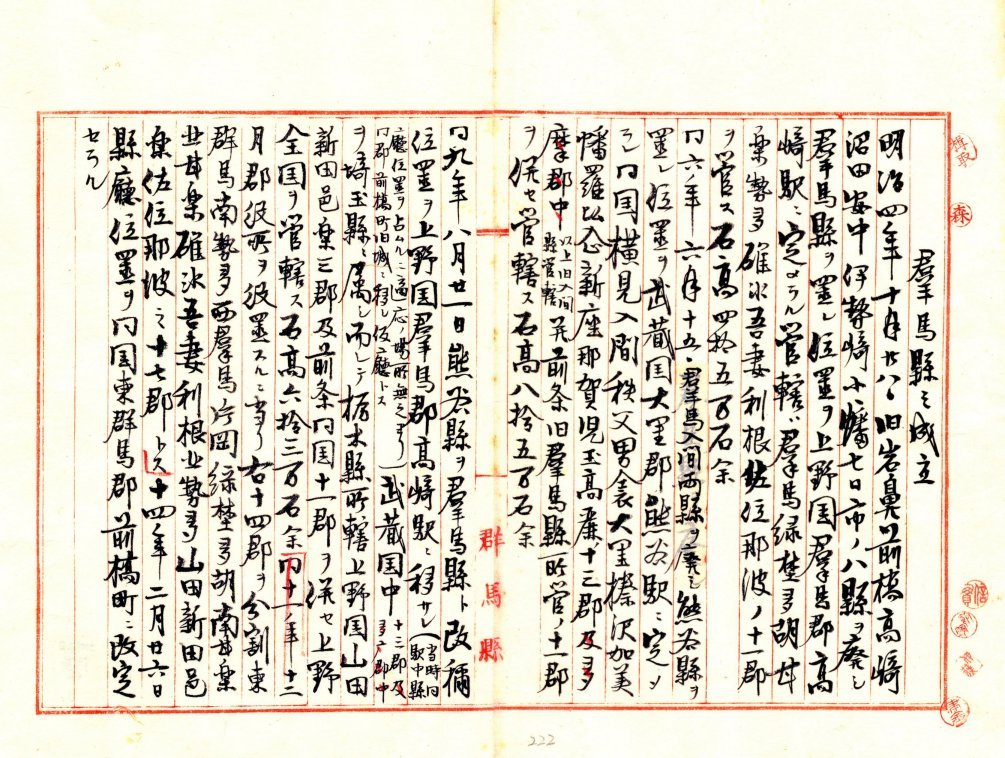 群馬縣之成立
明治四年十月廿八日旧岩鼻前橋高崎
沼田安中伊勢崎小幡七日市ノ八縣ヲ廃シ
群馬縣ヲ置レ位置ヲ上野国群馬郡高
崎駅ニ定メラル管轄ハ群馬緑埜多胡甘
楽勢多碓氷吾妻利根佐位那波ノ十一郡
ヲ管ス石高四拾五万石余
同六年六月十五日群馬入間両縣ヲ廃シ熊谷縣ヲ
置レ位置ヲ武蔵国大里郡熊谷駅ニ定メ
ラレ同国横見入間秩父男衾大里榛沢加美
幡羅比企新座那賀児玉高麗十三郡及多
摩郡中以上旧入間縣管轄并前条旧群馬縣所管ノ十一郡
ヲ併セ管轄ス石高八拾五万石余
同九年八月廿一日熊谷縣ヲ群馬縣ト改称
位置ヲ上野国群馬郡高崎駅ニ移サレ(当時同駅中縣
廳位置ヲ占ムルニ適応ノ場所無之ヨリ同郡前橋町旧城ニ移シ仮廳トス)武蔵国中十二郡及多摩郡中
ヲ埼玉縣ニ属シ而シテ栃木縣所轄上野国山田
新田邑楽三郡及前条同国十一郡ヲ併セ上野
全国ヲ管轄ス石高六拾三万石余同十一年十二
月郡役所ヲ設置スルニ当リ右十四郡ヲ分割東
群馬南勢多西群馬片岡緑埜多胡南甘楽
北甘楽碓氷吾妻利根北勢多山田新田邑
楽佐位那波之十七郡トス十四年二月廿六日
縣廳位置ヲ同国東群馬郡前橋町ニ改定
セラル
群馬縣
森
222